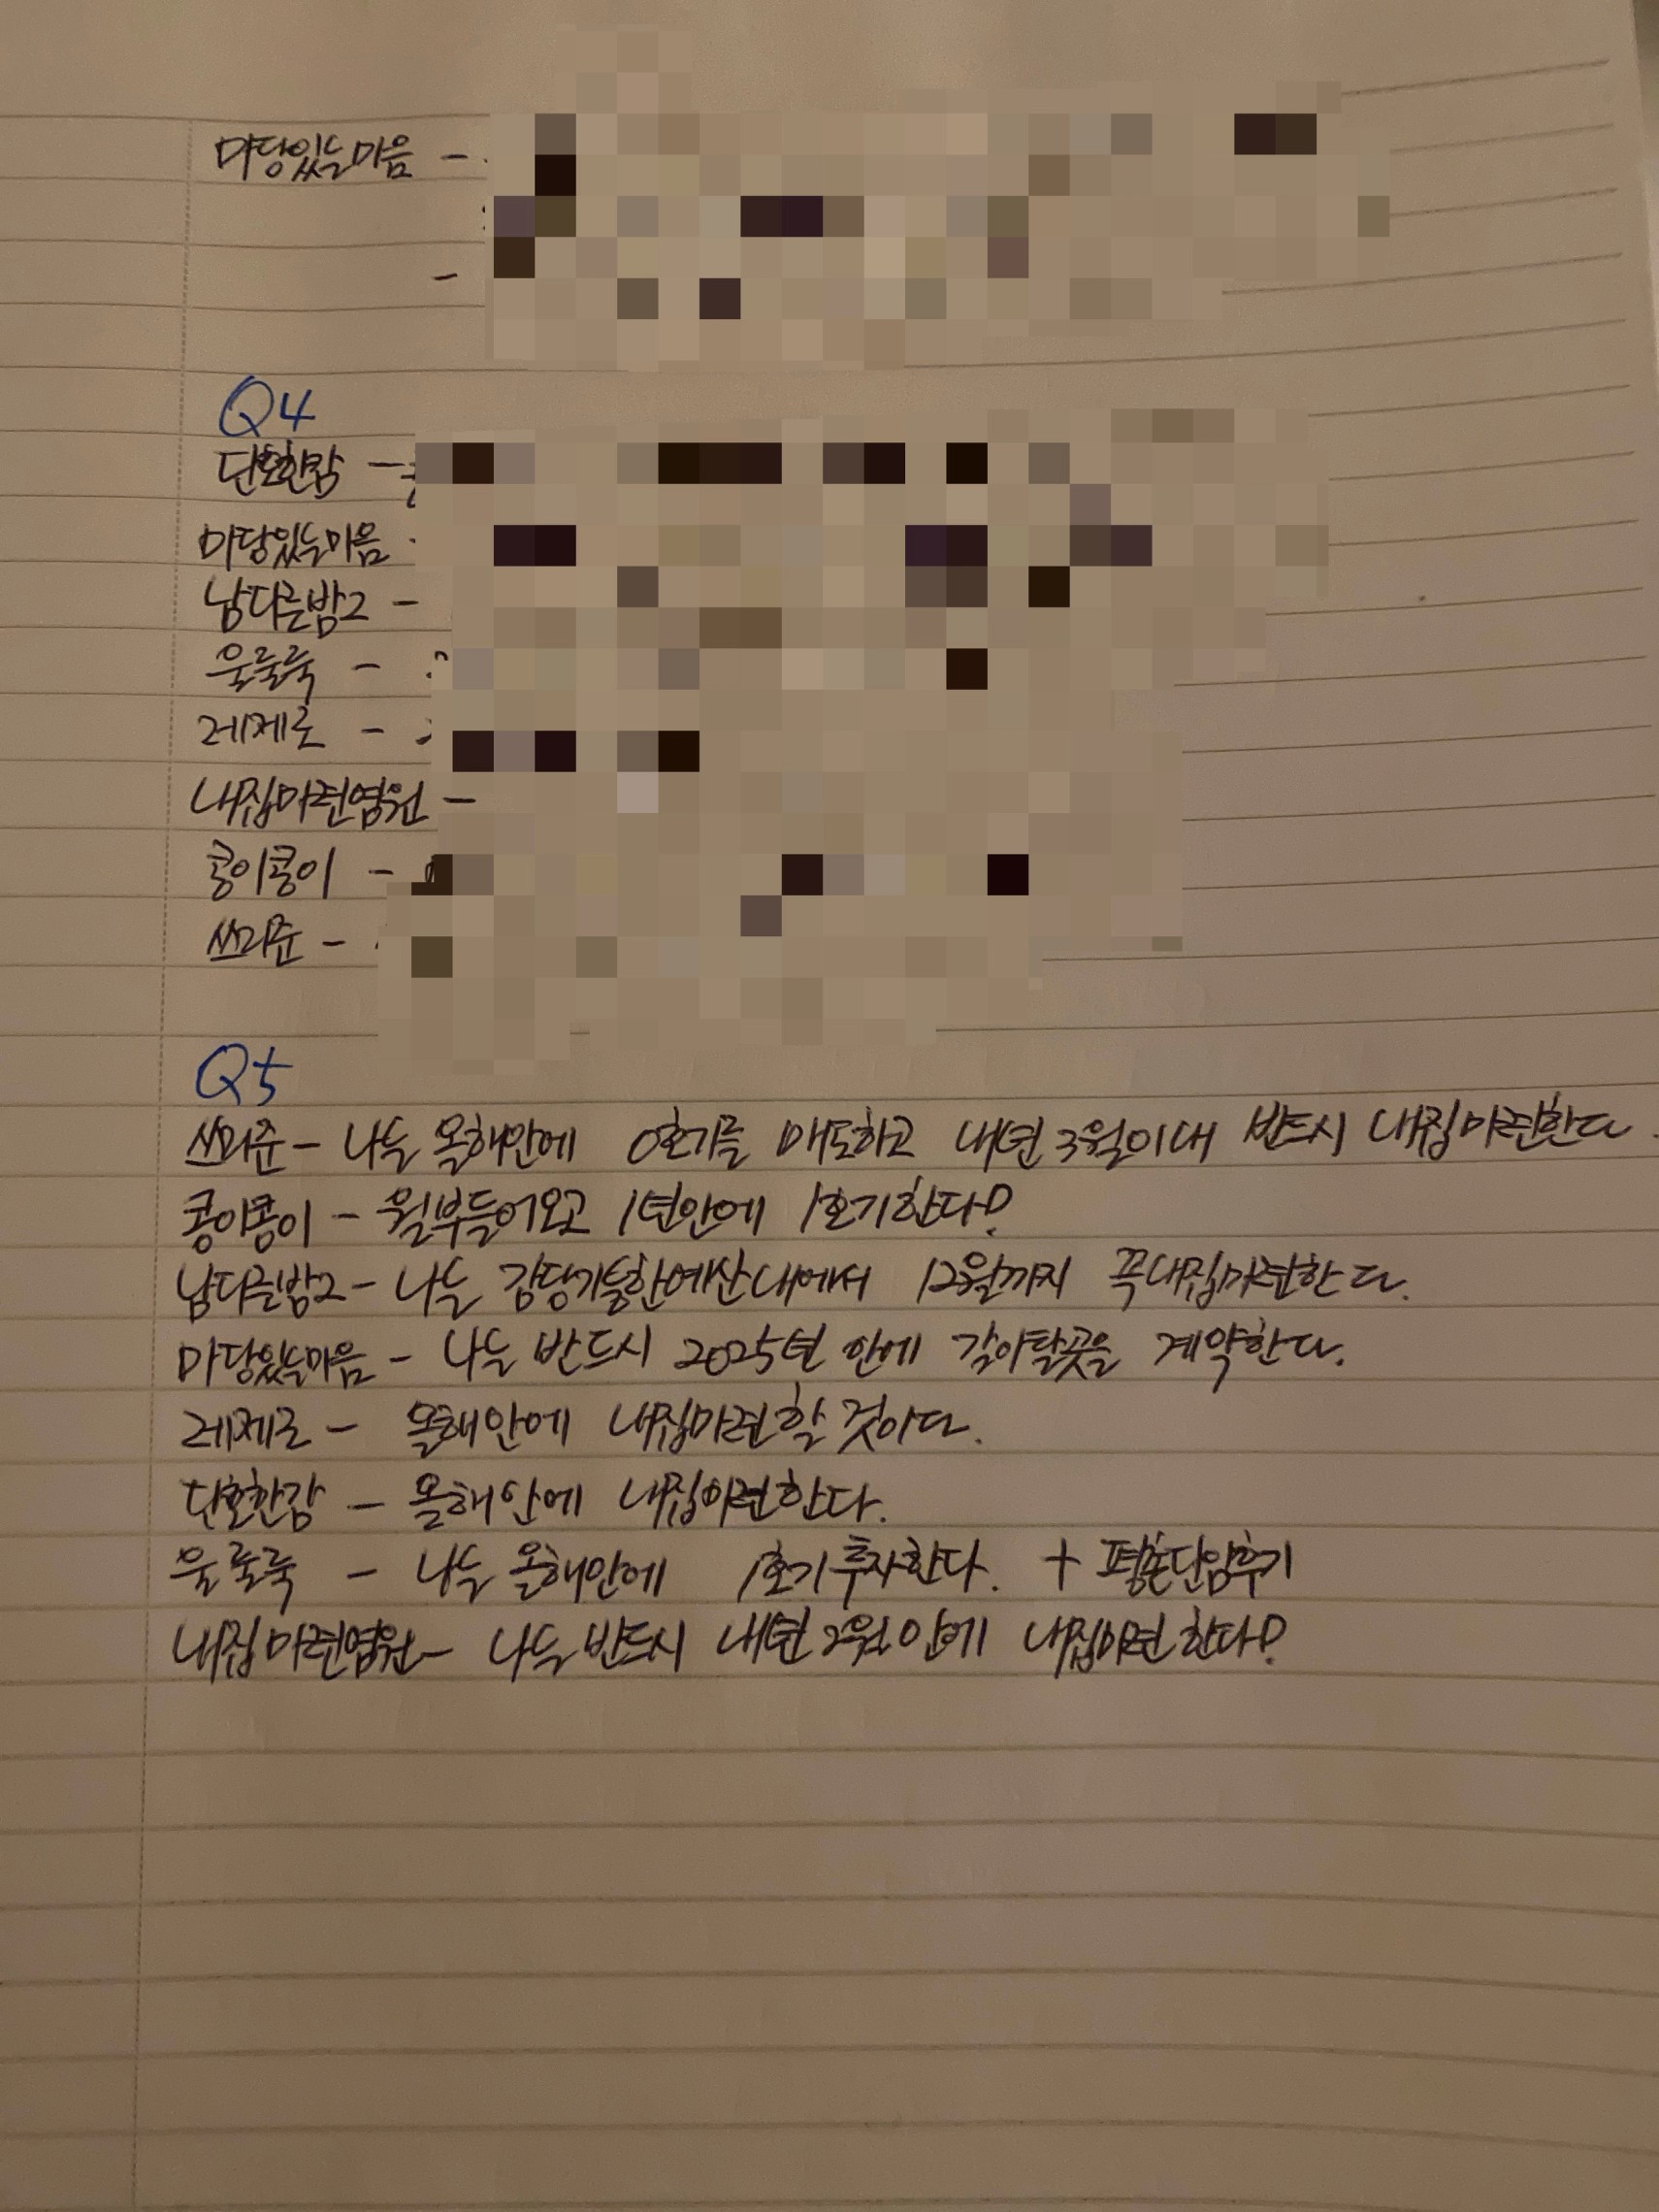 마당있는마음 -
-
Q4
단호한감 -
마당있는마음
남다른밤2 -
울룰룩 -
레제로 -
내집마련염원 -
콩이콩이 -
쓰리준 -
Q5
쓰리준 - 나는 올해안에 0호기를 매도하고 내년 3월이내 반드시 내집마련한다.
콩이콩이 - 월부들어오고 1년안에 1호기한다!
남다른밤2 - 나는 감당가능한예산내에서 12월까지 꼭내집마련한다.
마당있는마음 - 나는 반드시 2025년 안에 갈아탈곳을 계약한다.
레제로 - 올해안에 내집마련할 것이다.
단호한감 - 올해안에 내집마련한다.
울룰룩 - 나는 올해안에 1호기투자한다. + 평촌단임후기
내집마련염원 - 나는 반드시 내년 2월안에 내집마련한다!